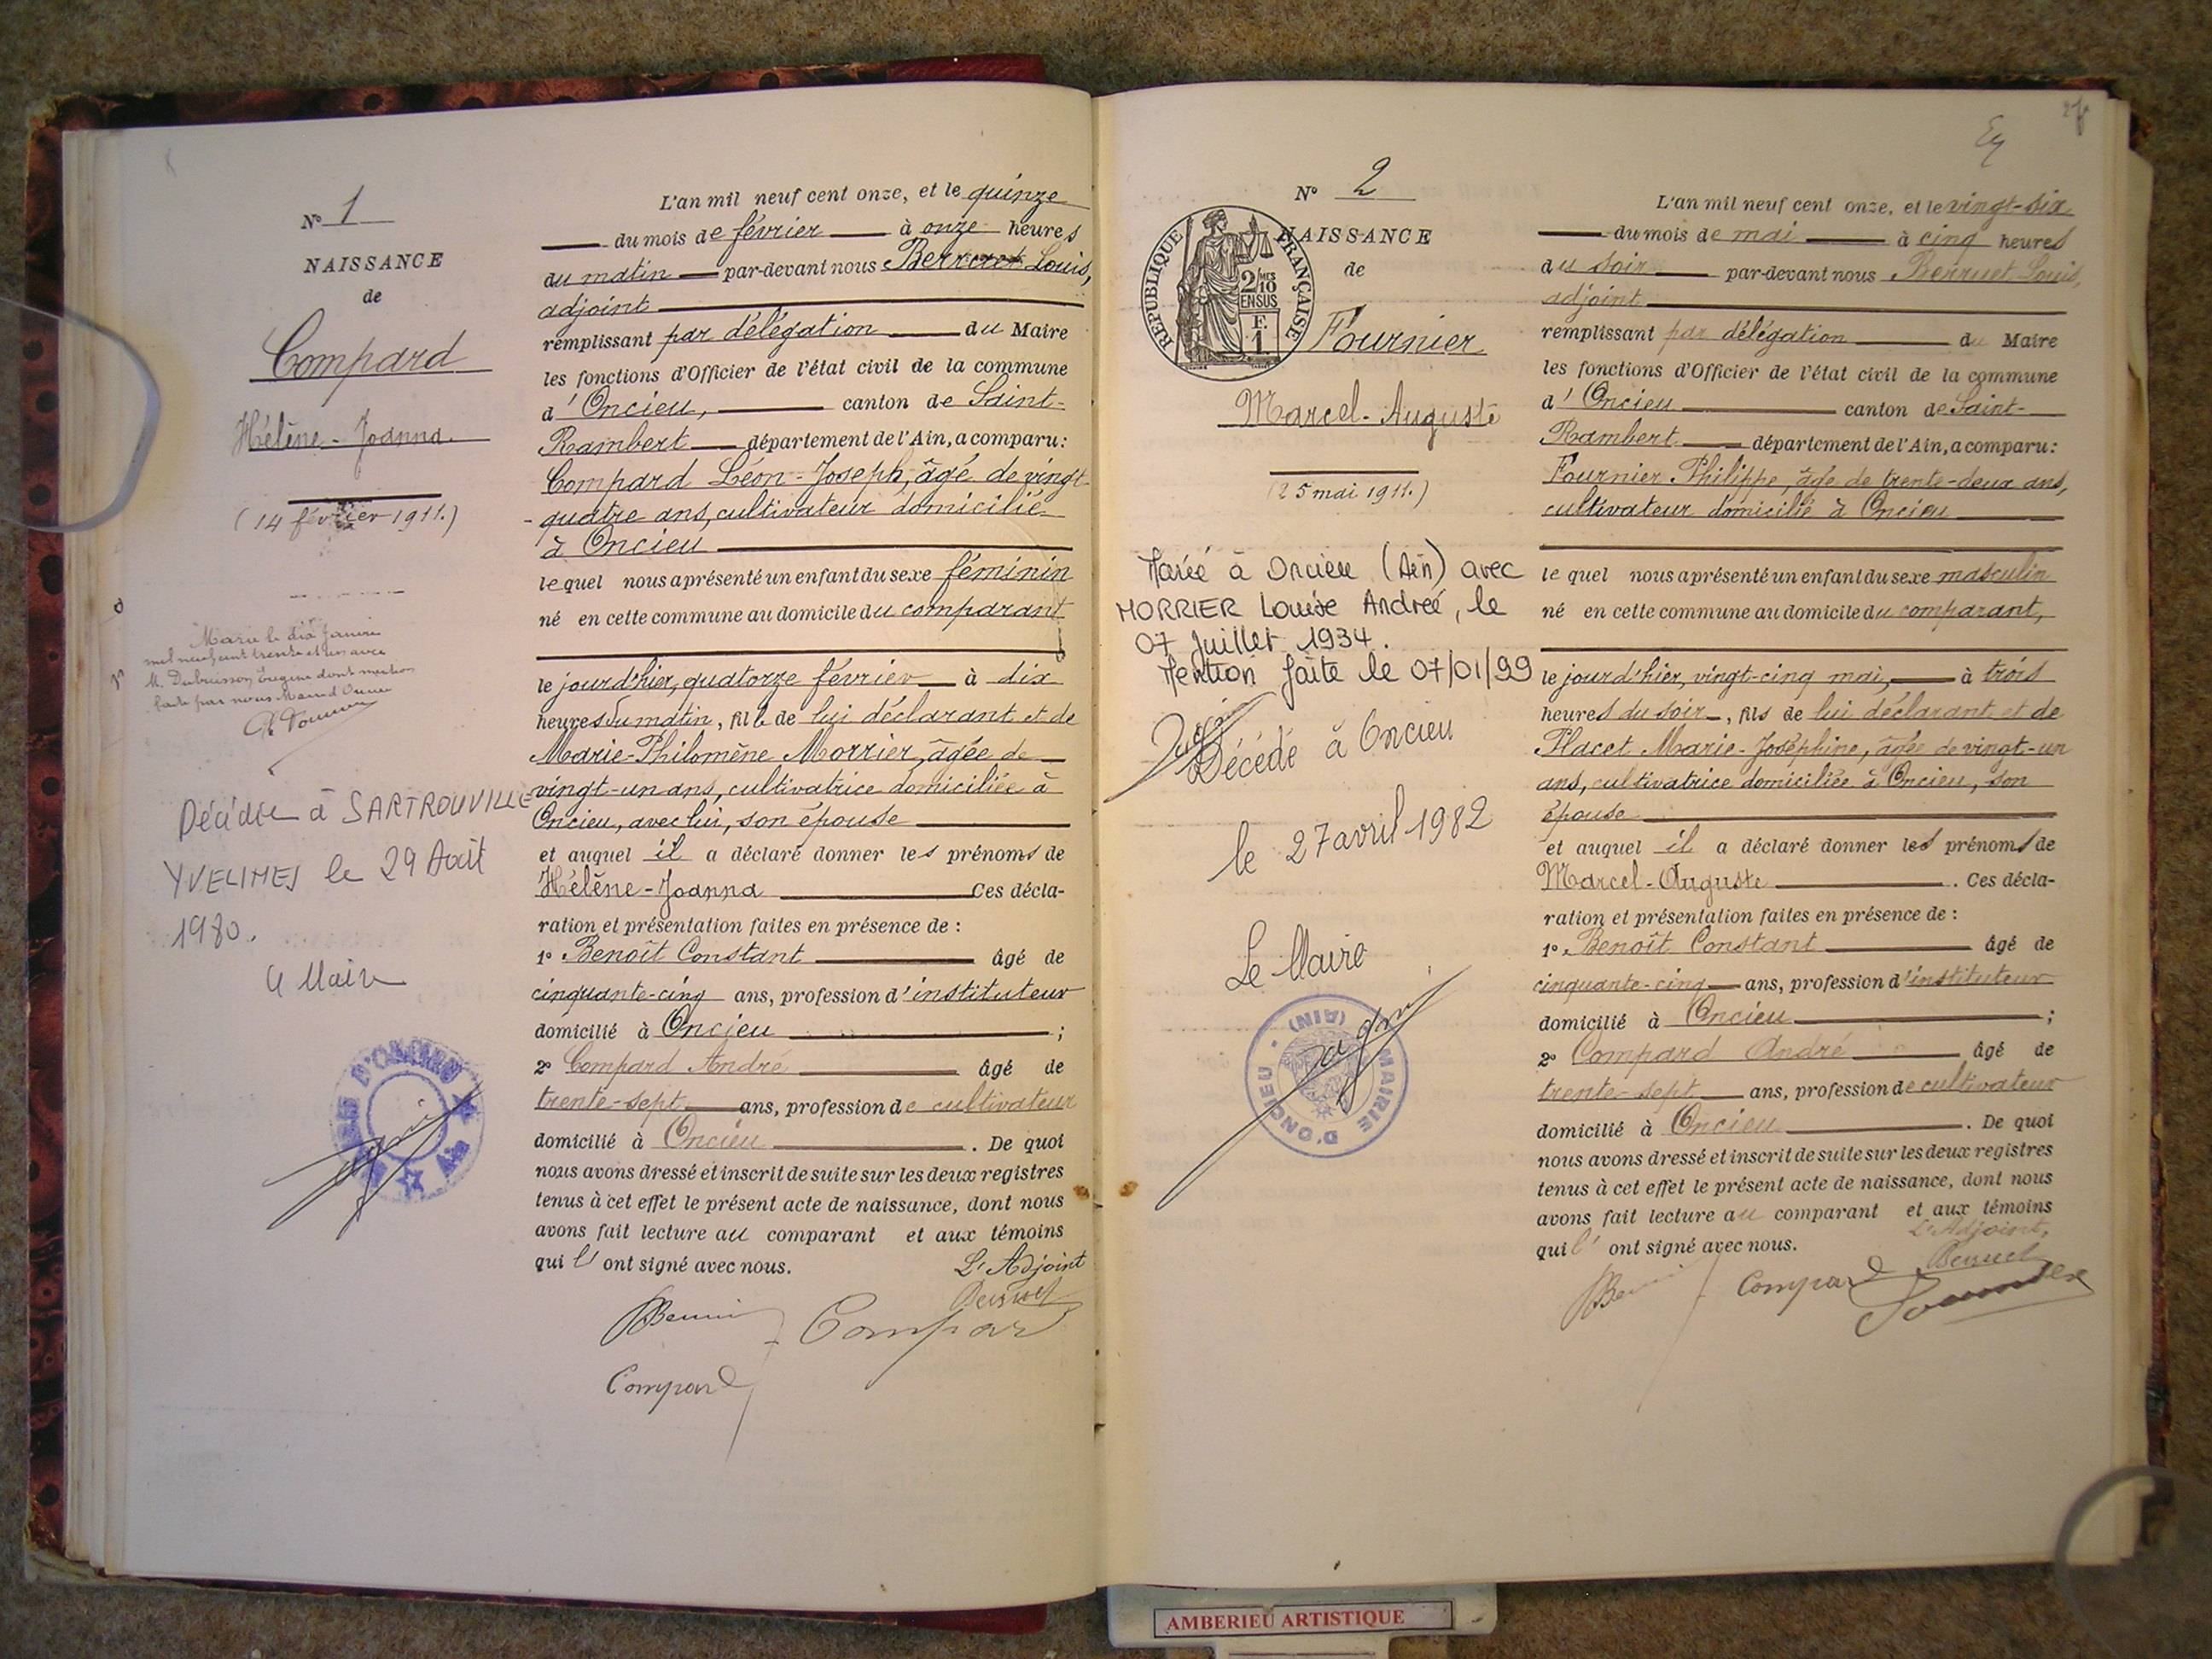 N° 1
NAISSANCE
de
Compard
Hélène-Joanna.
(14 février 1911.)
Marié le dix Janvier
mil neuf cent trente et un avec
M. Dubuisson Eugène dont mention
faite par nous Maire d'Oncieu
Décédée à SARTROUVILLE
YVELINES le 29 Août
1980.
Le Maire
L'an mil neuf cent onze, et le quinze
du mois de février à onze heures
du matin par-devant nous Louis,
adjoint
remplissant par délégation du Maire
les fonctions d'Officier de l'état civil de la commune
d'Oncieu, canton de Saint-
Rambert département de l'Ain, a comparu:
Compard Léon-Joseph, âgé de vingt-
quatre ans, cultivateur domicilié
à Oncieu
le quel nous a présenté un enfant du sexe féminin
né en cette commune au domicile du comparant
le jour d'hier, quatorze février à dix
heures du matin, fille de lui déclarant et de
Marie-Philomène Morrier, âgée de
vingt-un ans, cultivatrice domiciliée à
Oncieu, avec lui, son épouse
et auquel il a déclaré donner les prénoms de
Hélène-Joanna Ces décla-
ration et présentation faites en présence de :
1° Benoît Constant âgé de
cinquante-cinq ans, profession d'instituteur
domicilié à Oncieu ;
2° Compard André âgé de
trente-sept ans, profession de cultivateur
domicilié à Oncieu . De quoi
nous avons dressé et inscrit de suite sur les deux registres
tenus à cet effet le présent acte de naissance, dont nous
avons fait lecture au comparant et aux témoins
qui l'ont signé avec nous. L'Adjoint
Berruet
Compard
Compard
N° 2
NAISSANCE
de
RÉPUBLIQUE FRANÇAISE
2/10 MES
EN SUS
F.
1
Fournier
Marcel-Auguste
(25 mai 1911.)
Marié à Oncieu (Ain) avec
MORRIER Louise Andreé, le
07 Juillet 1934.
Mention faite le 07/01/99
Décédé à Oncieu
le 27 avril 1982
Le Maire
MAIRIE D'ONCIEU - (AIN)
L'an mil neuf cent onze, et le vingt-six
du mois de mai à cinq heures
du soir par-devant nous Berruet Louis,
adjoint
remplissant par délégation du Maire
les fonctions d'Officier de l'état civil de la commune
d'Oncieu canton de Saint-
Rambert département de l'Ain, a comparu:
Fournier Philippe, âgé de trente-deux ans,
cultivateur domicilié à Oncieu
le quel nous a présenté un enfant du sexe masculin
né en cette commune au domicile du comparant,
le jour d'hier, vingt-cinq mai, à trois
heures du soir, fils de lui déclarant et de
Placet Marie-Joséphine, âgée de vingt-un
ans, cultivatrice domiciliée à Oncieu, son
épouse
et auquel il a déclaré donner les prénoms de
Marcel-Auguste . Ces décla-
ration et présentation faites en présence de :
1° Benoît Constant âgé de
cinquante-cinq ans, profession d'instituteur
domicilié à Oncieu ;
2° Compard André âgé de
trente-sept ans, profession de cultivateur
domicilié à Oncieu . De quoi
nous avons dressé et inscrit de suite sur les deux registres
tenus à cet effet le présent acte de naissance, dont nous
avons fait lecture au comparant et aux témoins
qui l'ont signé avec nous. L'Adjoint,
Berruet
Compard
Fournier
AMBERIEU ARTISTIQUE